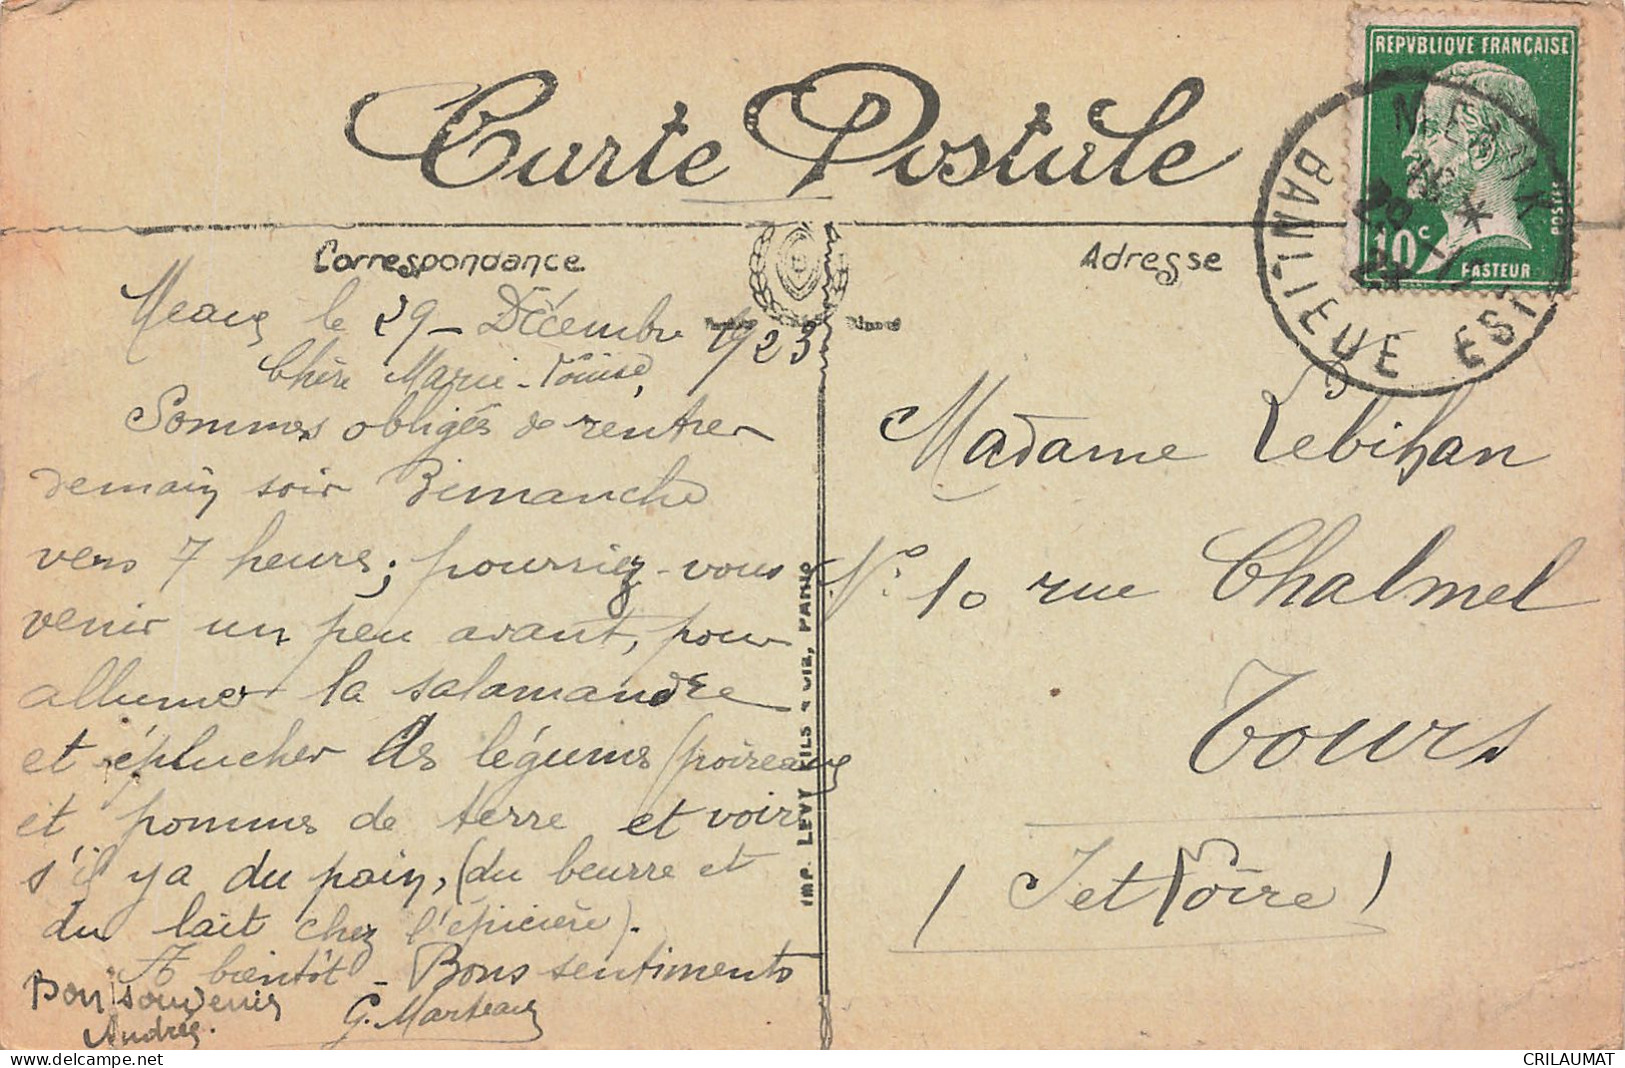 REPVBLIQVE FRANÇAISE
10c
POSTES
PASTEUR
BANLIEUE EST
Carte Postale
Correspondance
Adresse
le 29 - Décembre 1923
Chère Marie-Louise,
Sommes obligés de rentrer
demain soir Dimanche
vers 7 heures; pourriez-vous
venir un peu avant, pour
allumer la salamandre
et éplucher les légumes (poireaux
et pommes de terre et voir
s'il y a du pain, (du beurre et
du lait chez l'épicière).
A bientôt - Bons sentiments
G. Marteaux
Bon souvenir
Andrée.
IMP. LEVY FILS & CIE, PARIS
Madame Lebihan
N° 10 rue Chalmel
Tours
(I et Loire)
CRILAUMAT